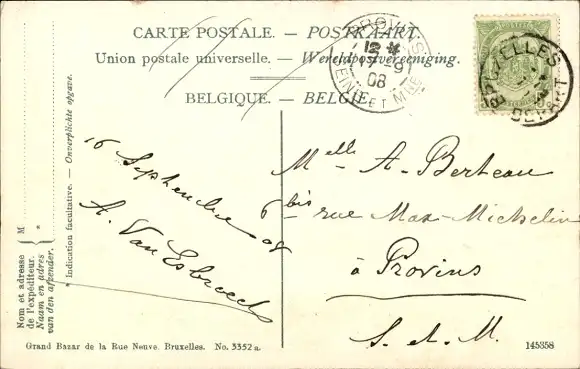 CARTE POSTALE. — POSTKAART.
Union postale universelle. — Wereldpostvereeniging.
BELGIQUE. — BELGIE.
PROVINS
12 *
17 - 9
08
SEINE ET MNE
BRUXELLES
DEPART
16 Septembre 08
A. Van Esbroeck
Melle A. Berteau
6 bis rue Max. Michelin
à Provins
S. et. M.
* Indication facultative. — Onverplichte opgave.
Nom et adresse de l'expéditeur. M
Naam en adres van den afzender. *
Grand Bazar de la Rue Neuve. Bruxelles. No. 3352 a.
145358